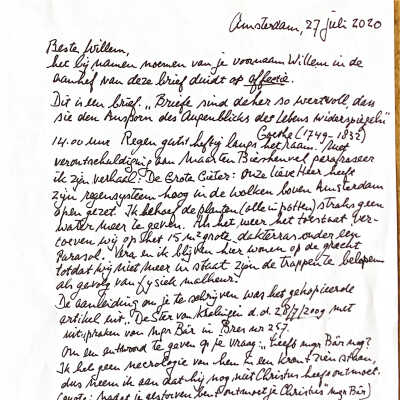 Amsterdam, 27 juli 2020
Beste Willem,
het bij namen noemen van je voornaam Willem in de
aanhef van deze brief duidt op affectie.
Dit is een brief. „Briefe sind daher so wertvoll, dass
sie den Ansporn des Augenblicks des Lebens widerspiegeln"
Goethe (1749-1832)
14.00 uur Regen gutst heftig langs het raam. Met
verontschuldiging aan Maarten Biesheuvel parafraseer
ik zijn verhaal: De Grote Gieter: Onze Lieve Heer heeft
zijn regensysteem hoog in de wolken boven Amsterdam
open gezet. Ik behoef de planten (alle in potten) straks geen
water meer te geven. Als het weer het toestaat ver-
toeven wij op het 15 m² grote dakterras onder een
Parasol. Vera en ik blijven hier wonen op de gracht
totdat wij niet meer in staat zijn de trappen te belopen
als gevolg van fysiek malheur.
De aanleiding om je te schrijven was het gekopieerde
artikel uit „De Ster van Kralingen d.d. 28/7/2009 met
uitspraken van mgr Bär in Bres nr 257.
Om een antwoord te geven op je vraag: „Leeft mgr Bär nog?
Ik heb geen necrologie van hem in een krant zien staan,
dus neem ik aan dat hij nog niet Christus heeft ontmoet.
(quote: nadat je gestorven bent ontmoet je Christus" mgr Bär)